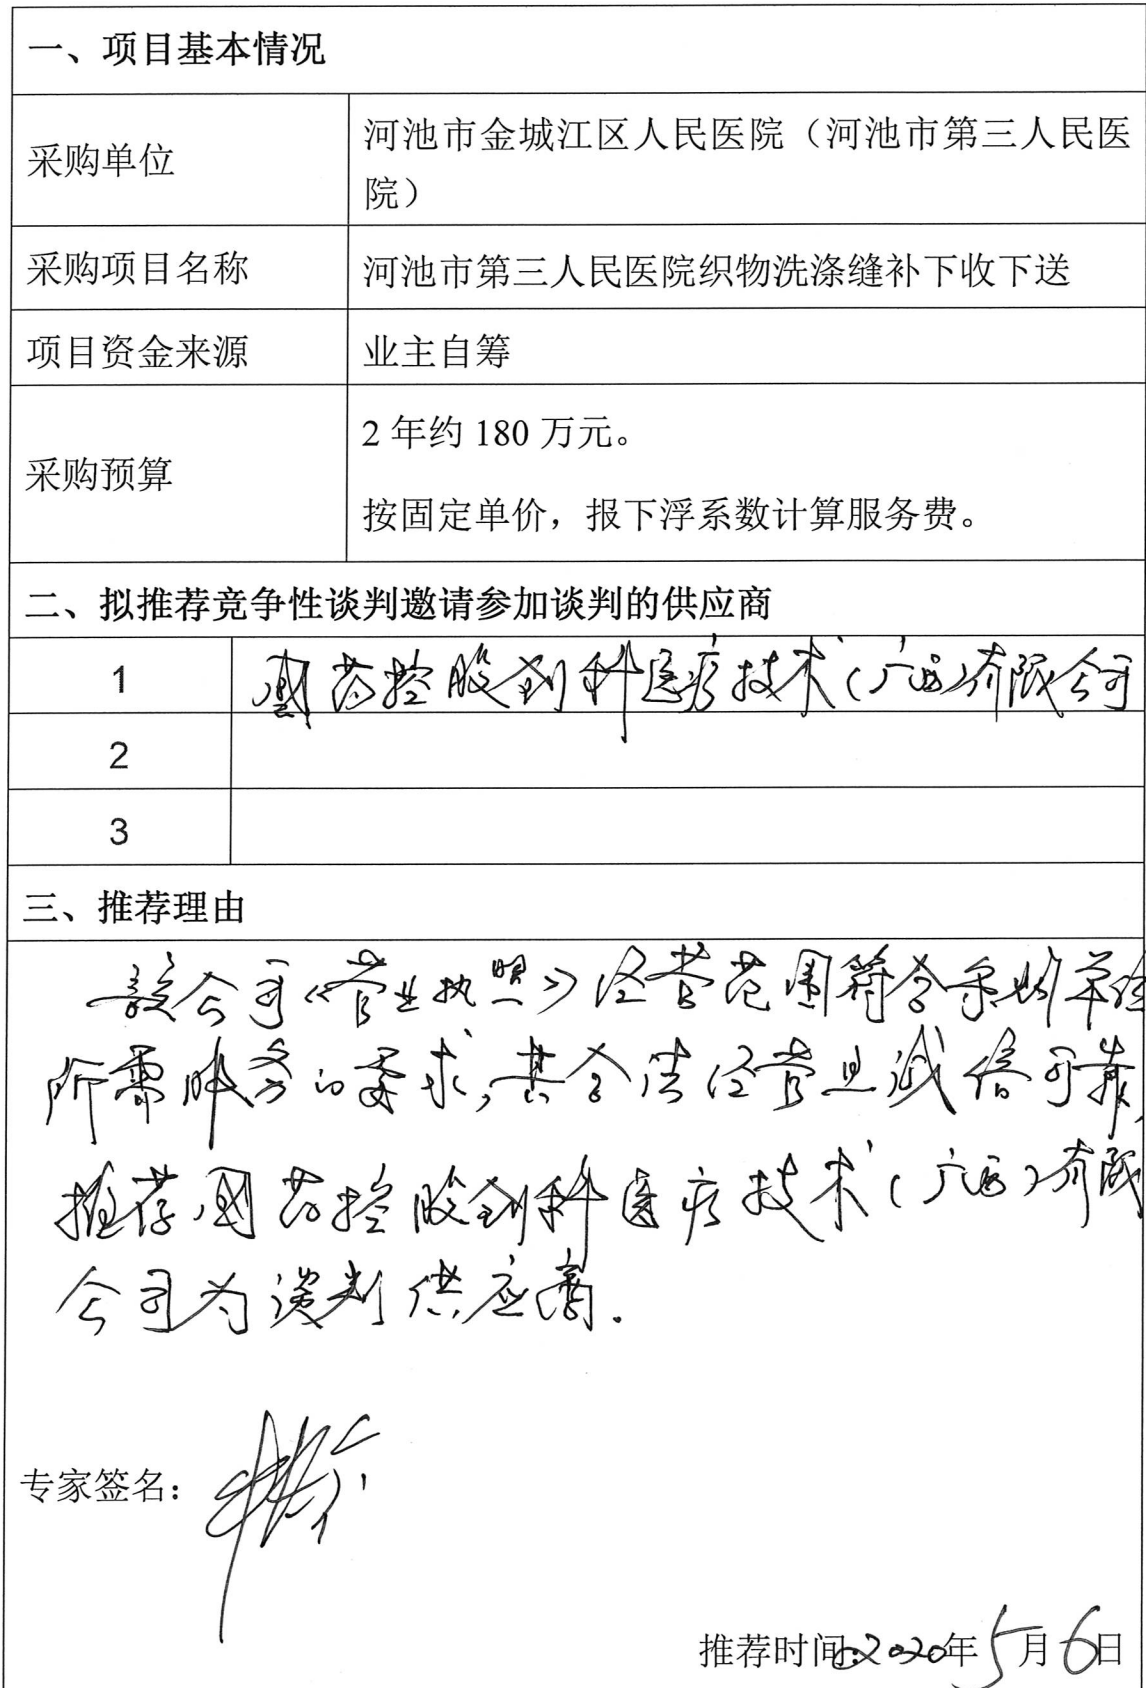 一、项目基本情况
采购单位
河池市金城江区人民医院（河池市第三人民医
院）
采购项目名称
河池市第三人民医院织物洗涤缝补下收下送
项目资金来源
业主自筹
采购预算
2 年约 180 万元。
按固定单价，报下浮系数计算服务费。
二、拟推荐竞争性谈判邀请参加谈判的供应商
1
国药控股创科医疗技术(广西)有限公司
2
3
三、推荐理由
该公司《营业执照》经营范围符合采购单位
所需服务的要求,其合法经营且诚信可靠,
推荐国药控股创科医疗技术(广西)有限
公司为谈判供应商.
专家签名：
推荐时间:2020年5月6日